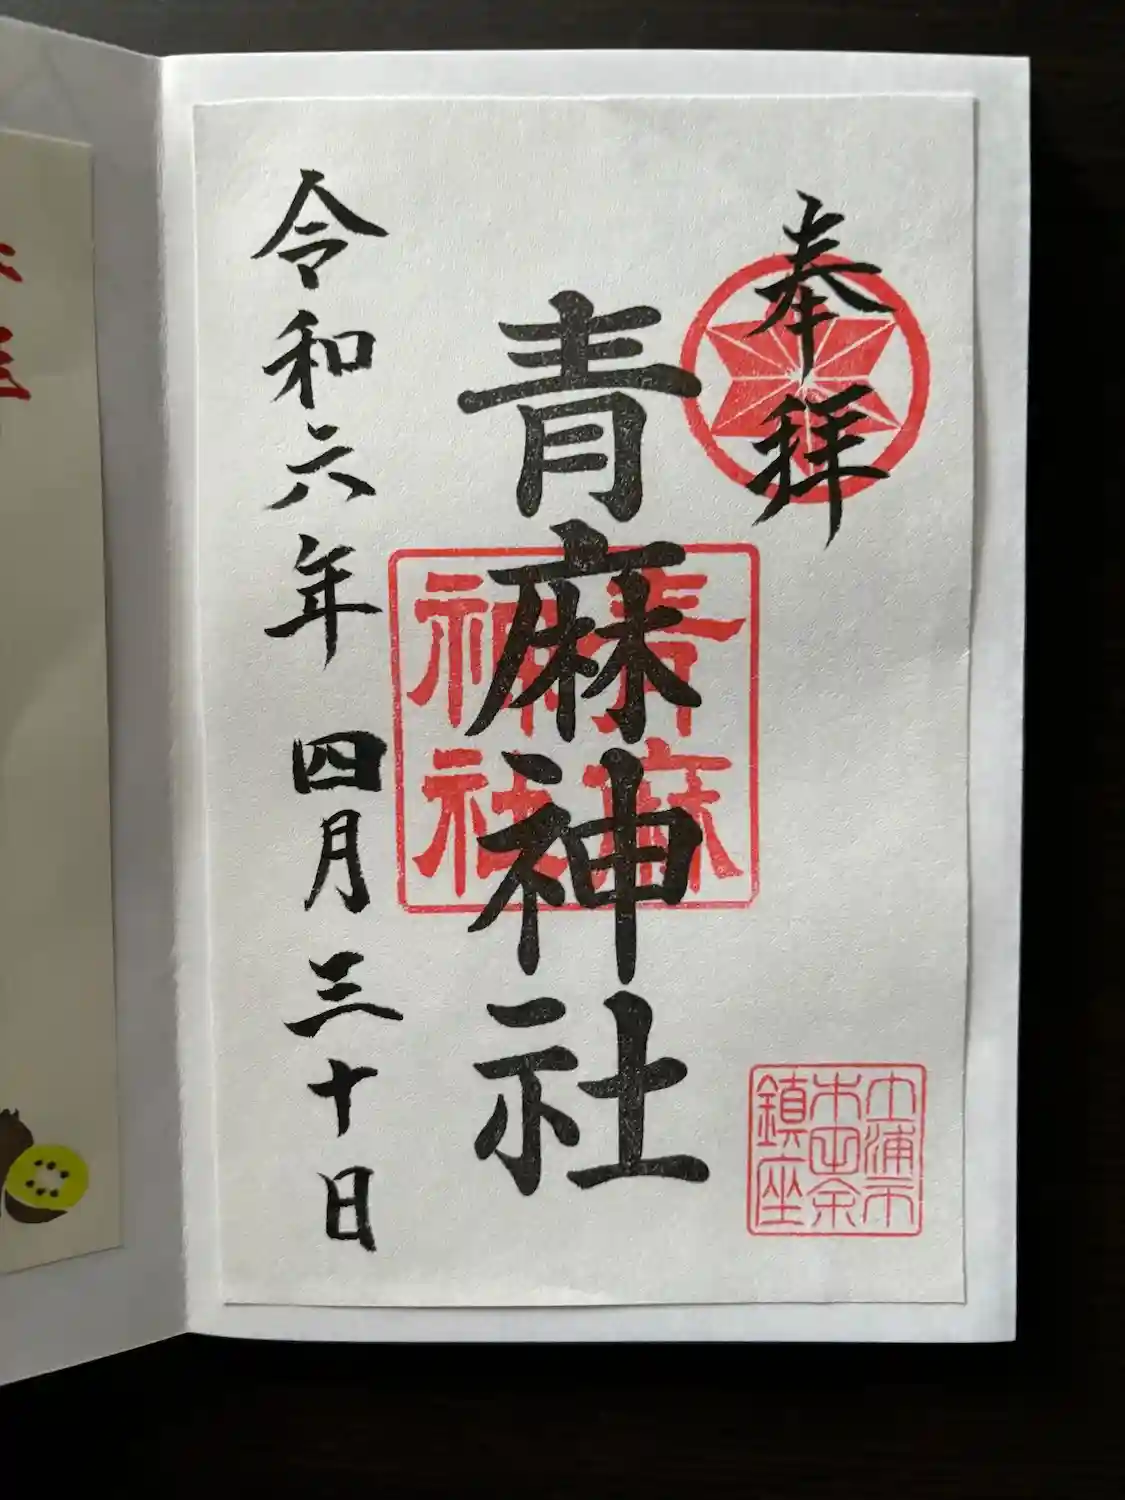 奉拝
青麻神社
青麻
神社
土浦市
木田余
鎮座
令和六年 四月三十日